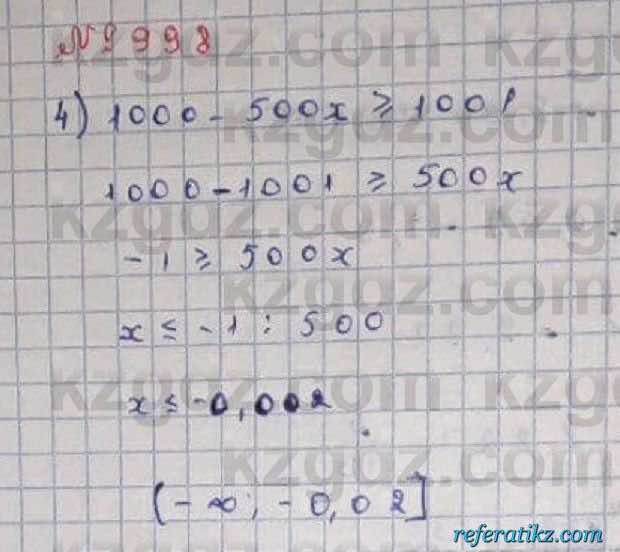 № 9998
4) 1000 - 500x ≥ 1001
1000 - 1001 ≥ 500x
-1 ≥ 500x
x ≤ -1 : 500
x ≤ -0,002
(-∞; -0,02]
kzgdz.com
referatikz.com